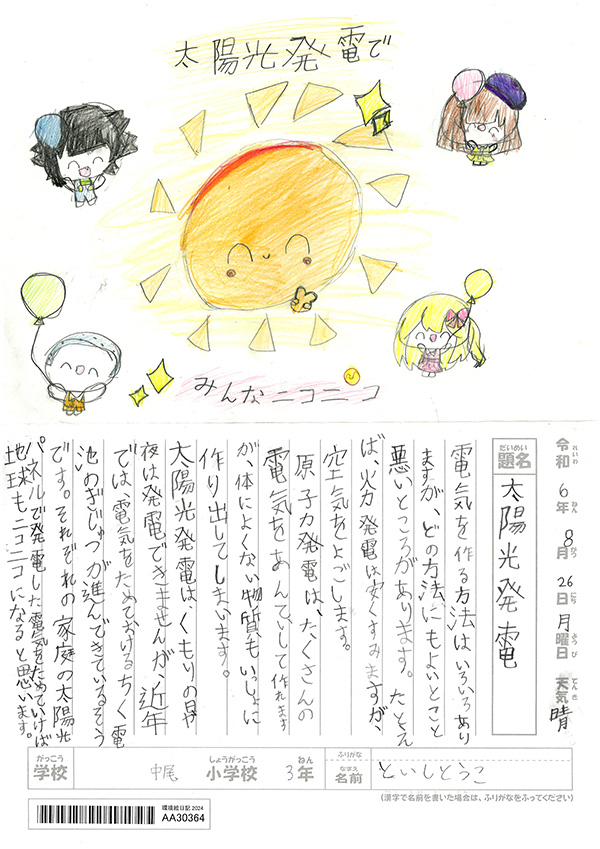 太陽光発電で
みんなニコニコ
令和 6年 8月 26日 月曜日 天気 晴
れいわ ねん がつ にち ようび てんき
題名 太陽光発電
だいめい
電気を作る方法はいろいろあり
ますが、どの方法にもよいとことと
悪いところがあります。たとえ
ば、火力発電は安くすみますが、
空気をよごします。
原子力発電は、たくさんの
電気をあんていして作れます
が、体によくない物質も、いっしょに
作り出してしまいます。
太陽光発電は、くもりの日や
夜は発電できませんが、近年
では、電気をためておけるちく電
池のぎじゅつが進んできているそう
です。それぞれの家庭の太陽光
パネルで発電した電気をためていけば
地球もニコニコになると思います。
がっこう しょうがっこう ねん ふりがな
学校 中尾 小学校 3年 名前 といしとうこ
なまえ
(漢字で名前を書いた場合は、ふりがなをふってください)
環境絵日記 2024
AA30364